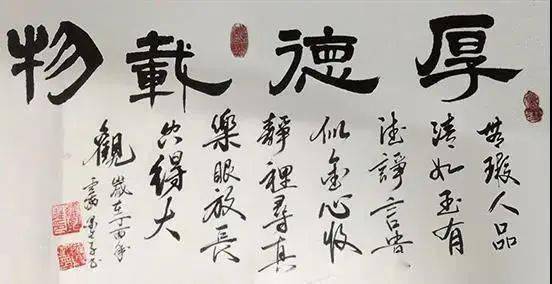 厚德載物
無瑕人品
清如玉有
德諍言貴
似金心收
靜裡尋真
樂眼放長
空得大
觀
歲在丁酉年